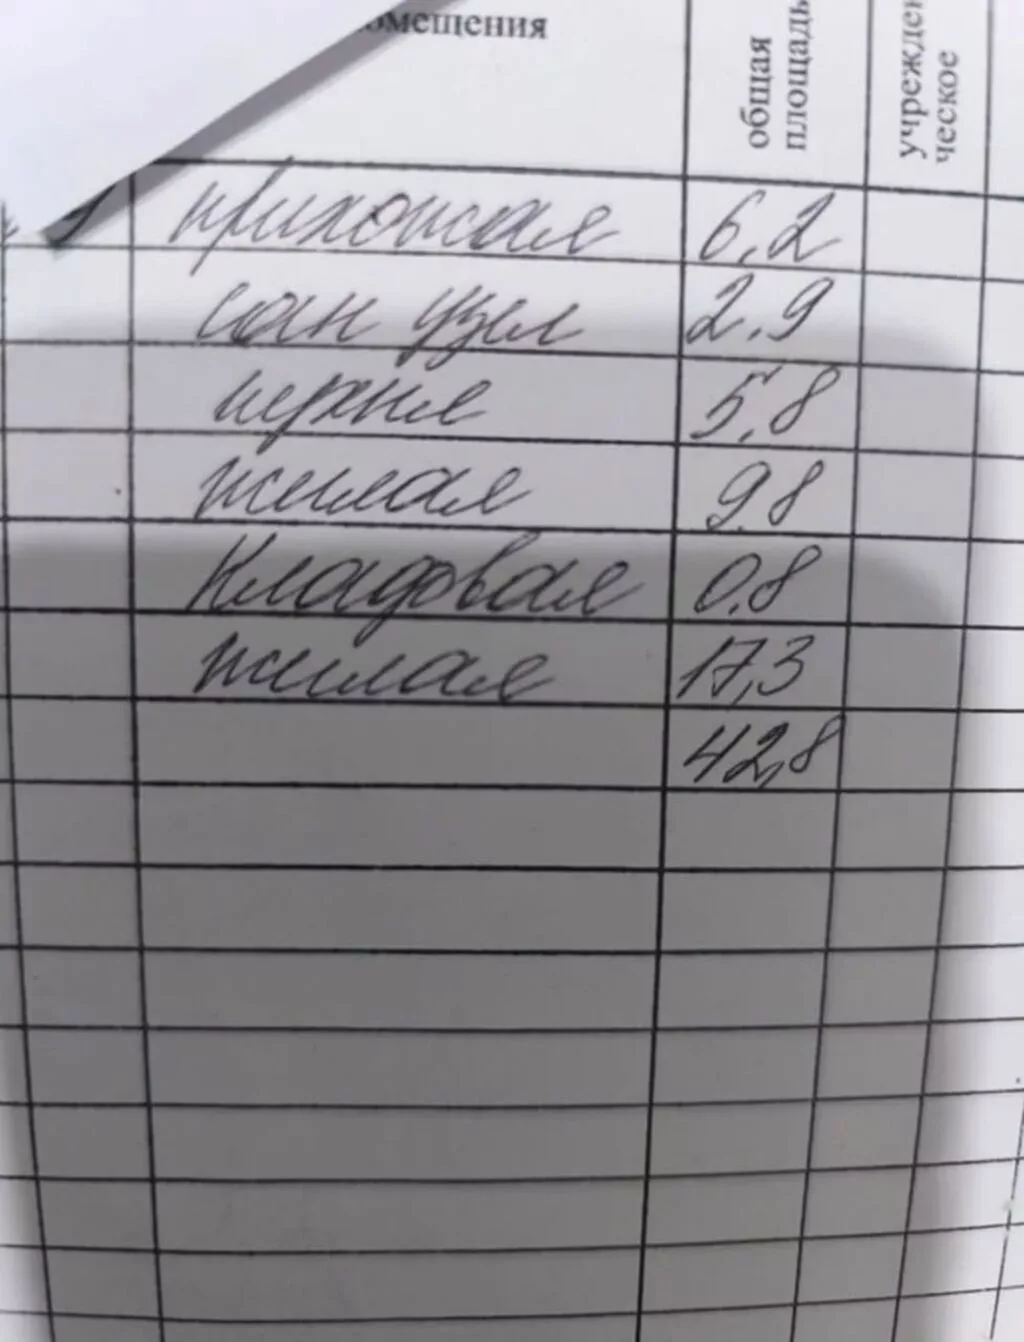 омещения
общая
площадь
учрежден
ческое
прихожая 6,2
сан узел 2.9
кухня 5,8
жилая 9.8
кладовая 0.8
жилая 17,3
42,8